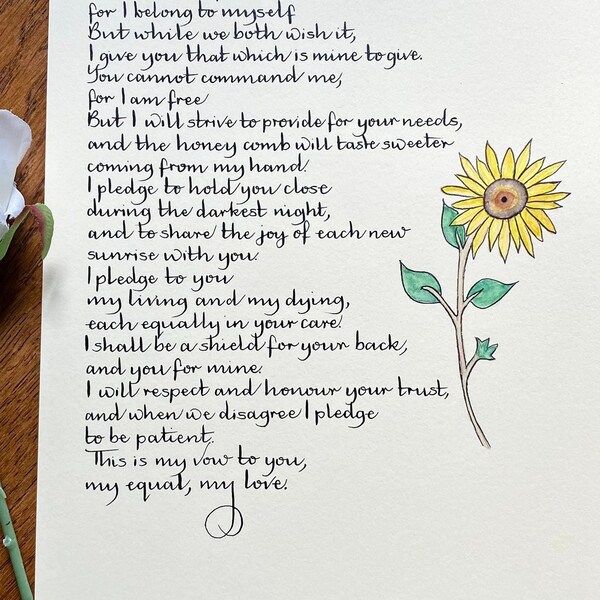 for I belong to myself
But while we both wish it,
I give you that which is mine to give.
You cannot command me,
for I am free
But I will strive to provide for your needs,
and the honey comb will taste sweeter
coming from my hand.
I pledge to hold you close
during the darkest night,
and to share the joy of each new
sunrise with you.
I pledge to you
my living and my dying,
each equally in your care.
I shall be a shield for your back,
and you for mine.
I will respect and honour your trust,
and when we disagree I pledge
to be patient.
This is my vow to you,
my equal, my love.